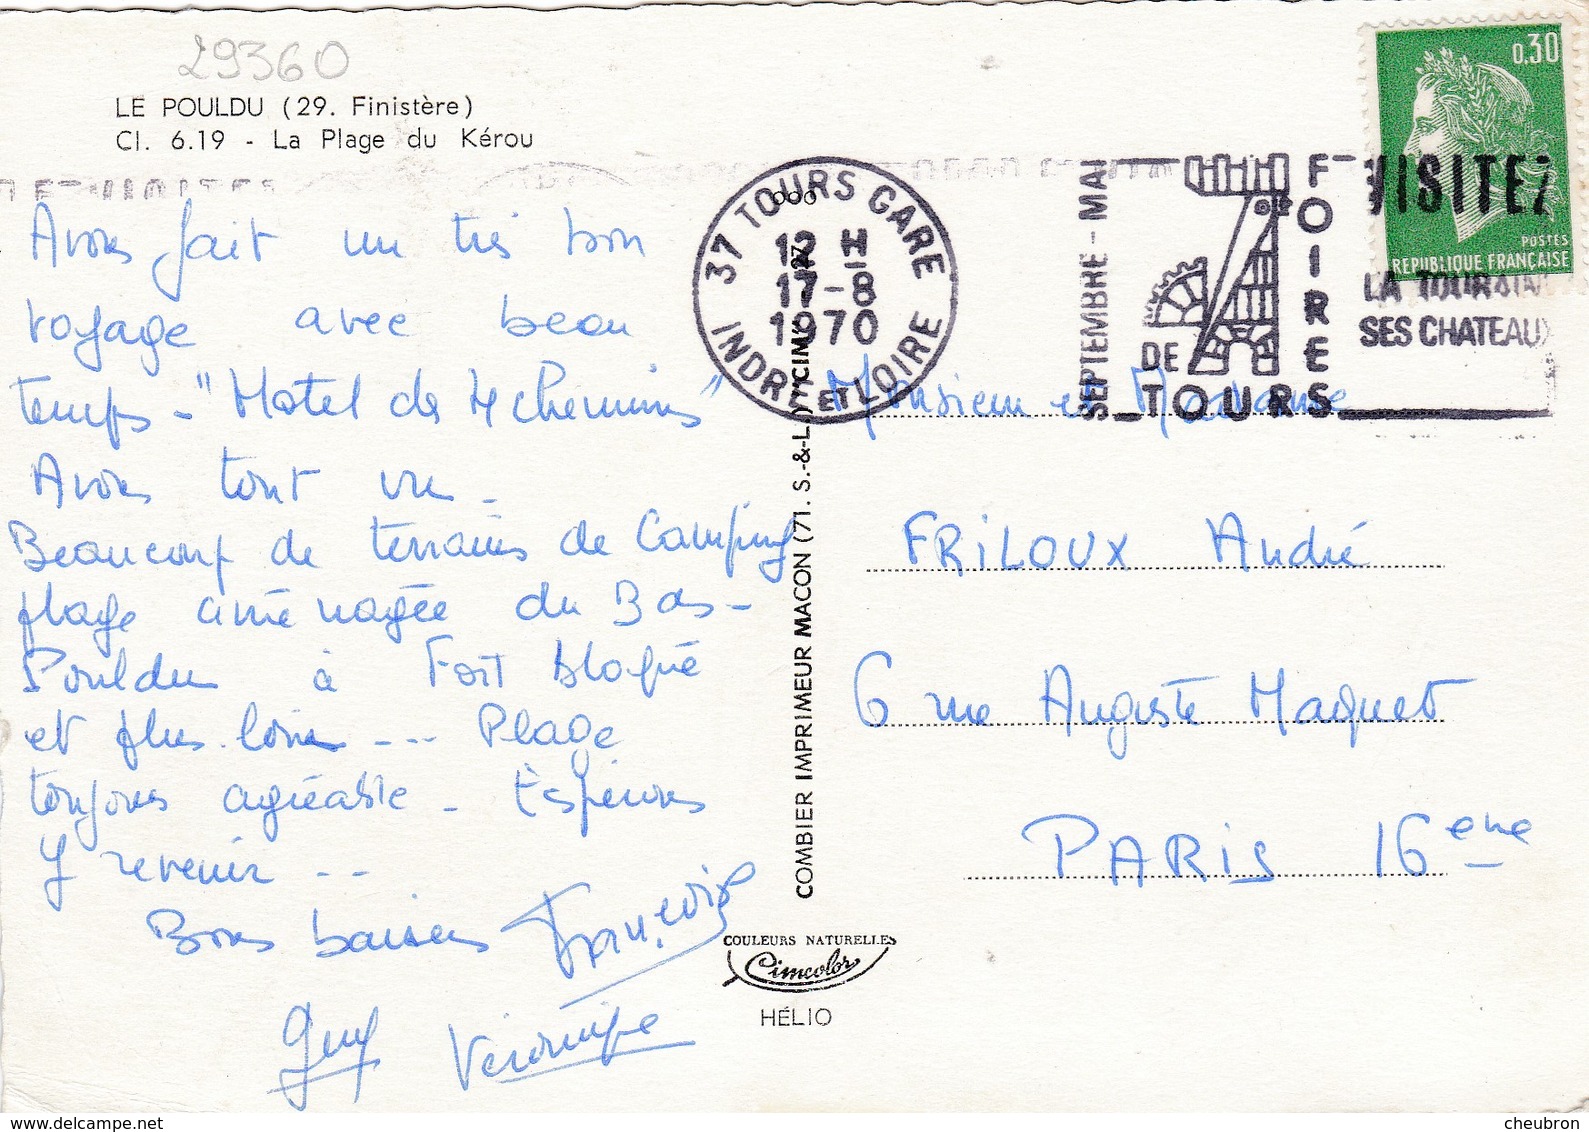 29360
LE POULDU (29. Finistère)
Cl. 6.19 - La Plage du Kérou
Avons fait un très bon
voyage avec beau
temps - "Motel de 4 chemins"
Avons tout vu -
Beaucoup de terrains de Camping
plage aménagée du Bas-
Pouldu à Fort bloqué
et plus loin --- Plage
toujours agréable - Espérons
y revenir --
Bons baisers François
Guy Véronique
COMBIER IMPRIMEUR MACON (71. S.-&-L.) "CIM"
COULEURS NATURELLES
Cimcolor
HÉLIO
37 TOURS GARE
12 H
17-8
1970
INDRE ET LOIRE
SEPTEMBRE - MAI
FOIRES
DE
TOURS
VISITEZ
LA TOURAINE
SES CHATEAUX
0,30
POSTES
REPUBLIQUE FRANÇAISE
Monsieur et Madame
FRILOUX André
6 rue Auguste Maquet
PARIS 16eme
www.delcampe.net
cheubron